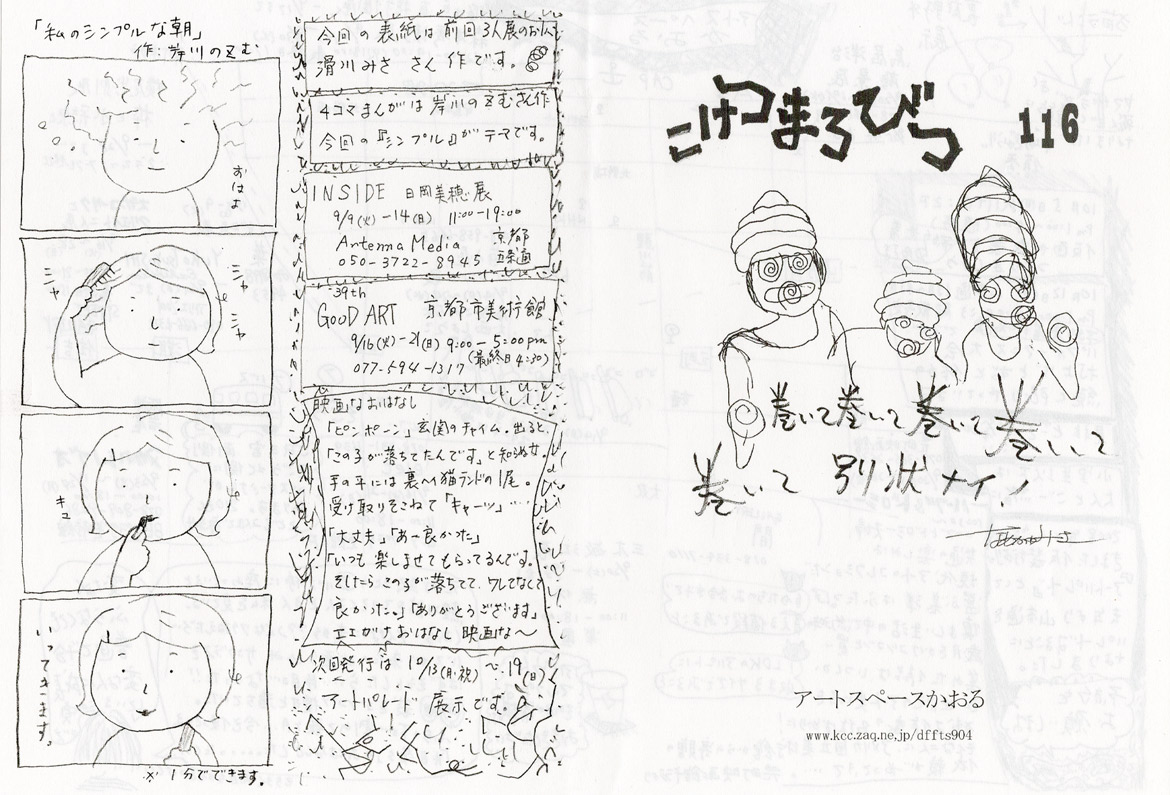 「私のシンプルな朝」
作:岸川のぞむ
おはよ
ニャ
ニャ
ニャ
キュ
いってきます。
※ 1分でできます。
今回の表紙は前回3人展のおんな
滑川みさ さん 作です。
4コマまんがは岸川のぞむさん作
今回の『シンプル』がテーマです。
INSIDE 日岡美穂展
9/9(火)-14(日) 11:00-19:00
Antenna Media 京都
050-3722-8945 五条通
39th
GooD ART 京都市美術館
9/16(火)-21(日) 9:00-5:00pm
(最終日4:30)
077-594-1317
映画なおはなし
「ピンポーン」玄関のチャイム。出ると、
「この子が落ちてたんです」と知らぬ女。
手の平には裏ヘイ猫ランドの1尾。
受け取りそこねて「キャーッ」……
「大丈夫」「あー良かった」
「いつも楽しませてもらってるんです。
そしたらこの子が落ちてて、ワレてなくて
良かった。」「ありがとうございます。」
エエがナ おはなし 映画な〜
次回発行は 10/13(月・祝)〜19(日)
アートパレード 展示です。
こけつまろびつ 116
巻いて巻いて巻いて巻いいて
巻いて 別状ナイ!
アートスペースかおる
www.kcc.zaq.ne.jp/dffts904